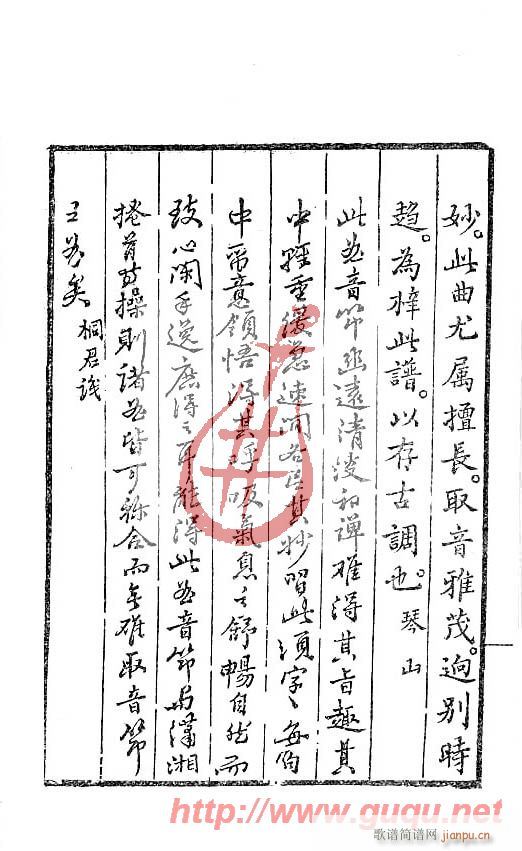 妙。此曲尤属擅長。取音雅茂。迥别時
趋。為梓此譜。以存古調也。琴山
此曲音節幽遠清淡和禪难得其旨趣其
中輕重緩急速间各臣其妙習此須字々每句
中留意领悟得其呼吸氣息之舒暢自然而
玅心闲手逸庶得之耳能得此曲音節与瀟湘
捲首曲操則諸曲皆可融会而無难取音節
之曲矣 桐君识
http://www.guqu.net
歌谱简谱网
jianpu.cn